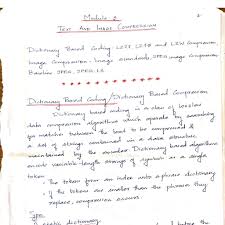 Module 2
TEXT AND IMAGE COMPRESSION
Dictionary Based Coding - LZ77, LZ78 and LZW Compression
Image Compression - Image standards, JPEG image Compression
Baseline JPEG, JPEG LS
Dictionary Based Coding / Dictionary Based Compression
Dictionary based coding is a class of lossless
data compression algorithms which operate by searching
for matches between the text to be compressed &
a set of strings contained in a data structure
maintained by the encoder. Dictionary based algorithms
encode variable-length strings of symbols as a single
token
The token form an index into a phrase dictionary
if the tokens are smaller than the phrases they
replace, compression occurs.
Types
static dictionary